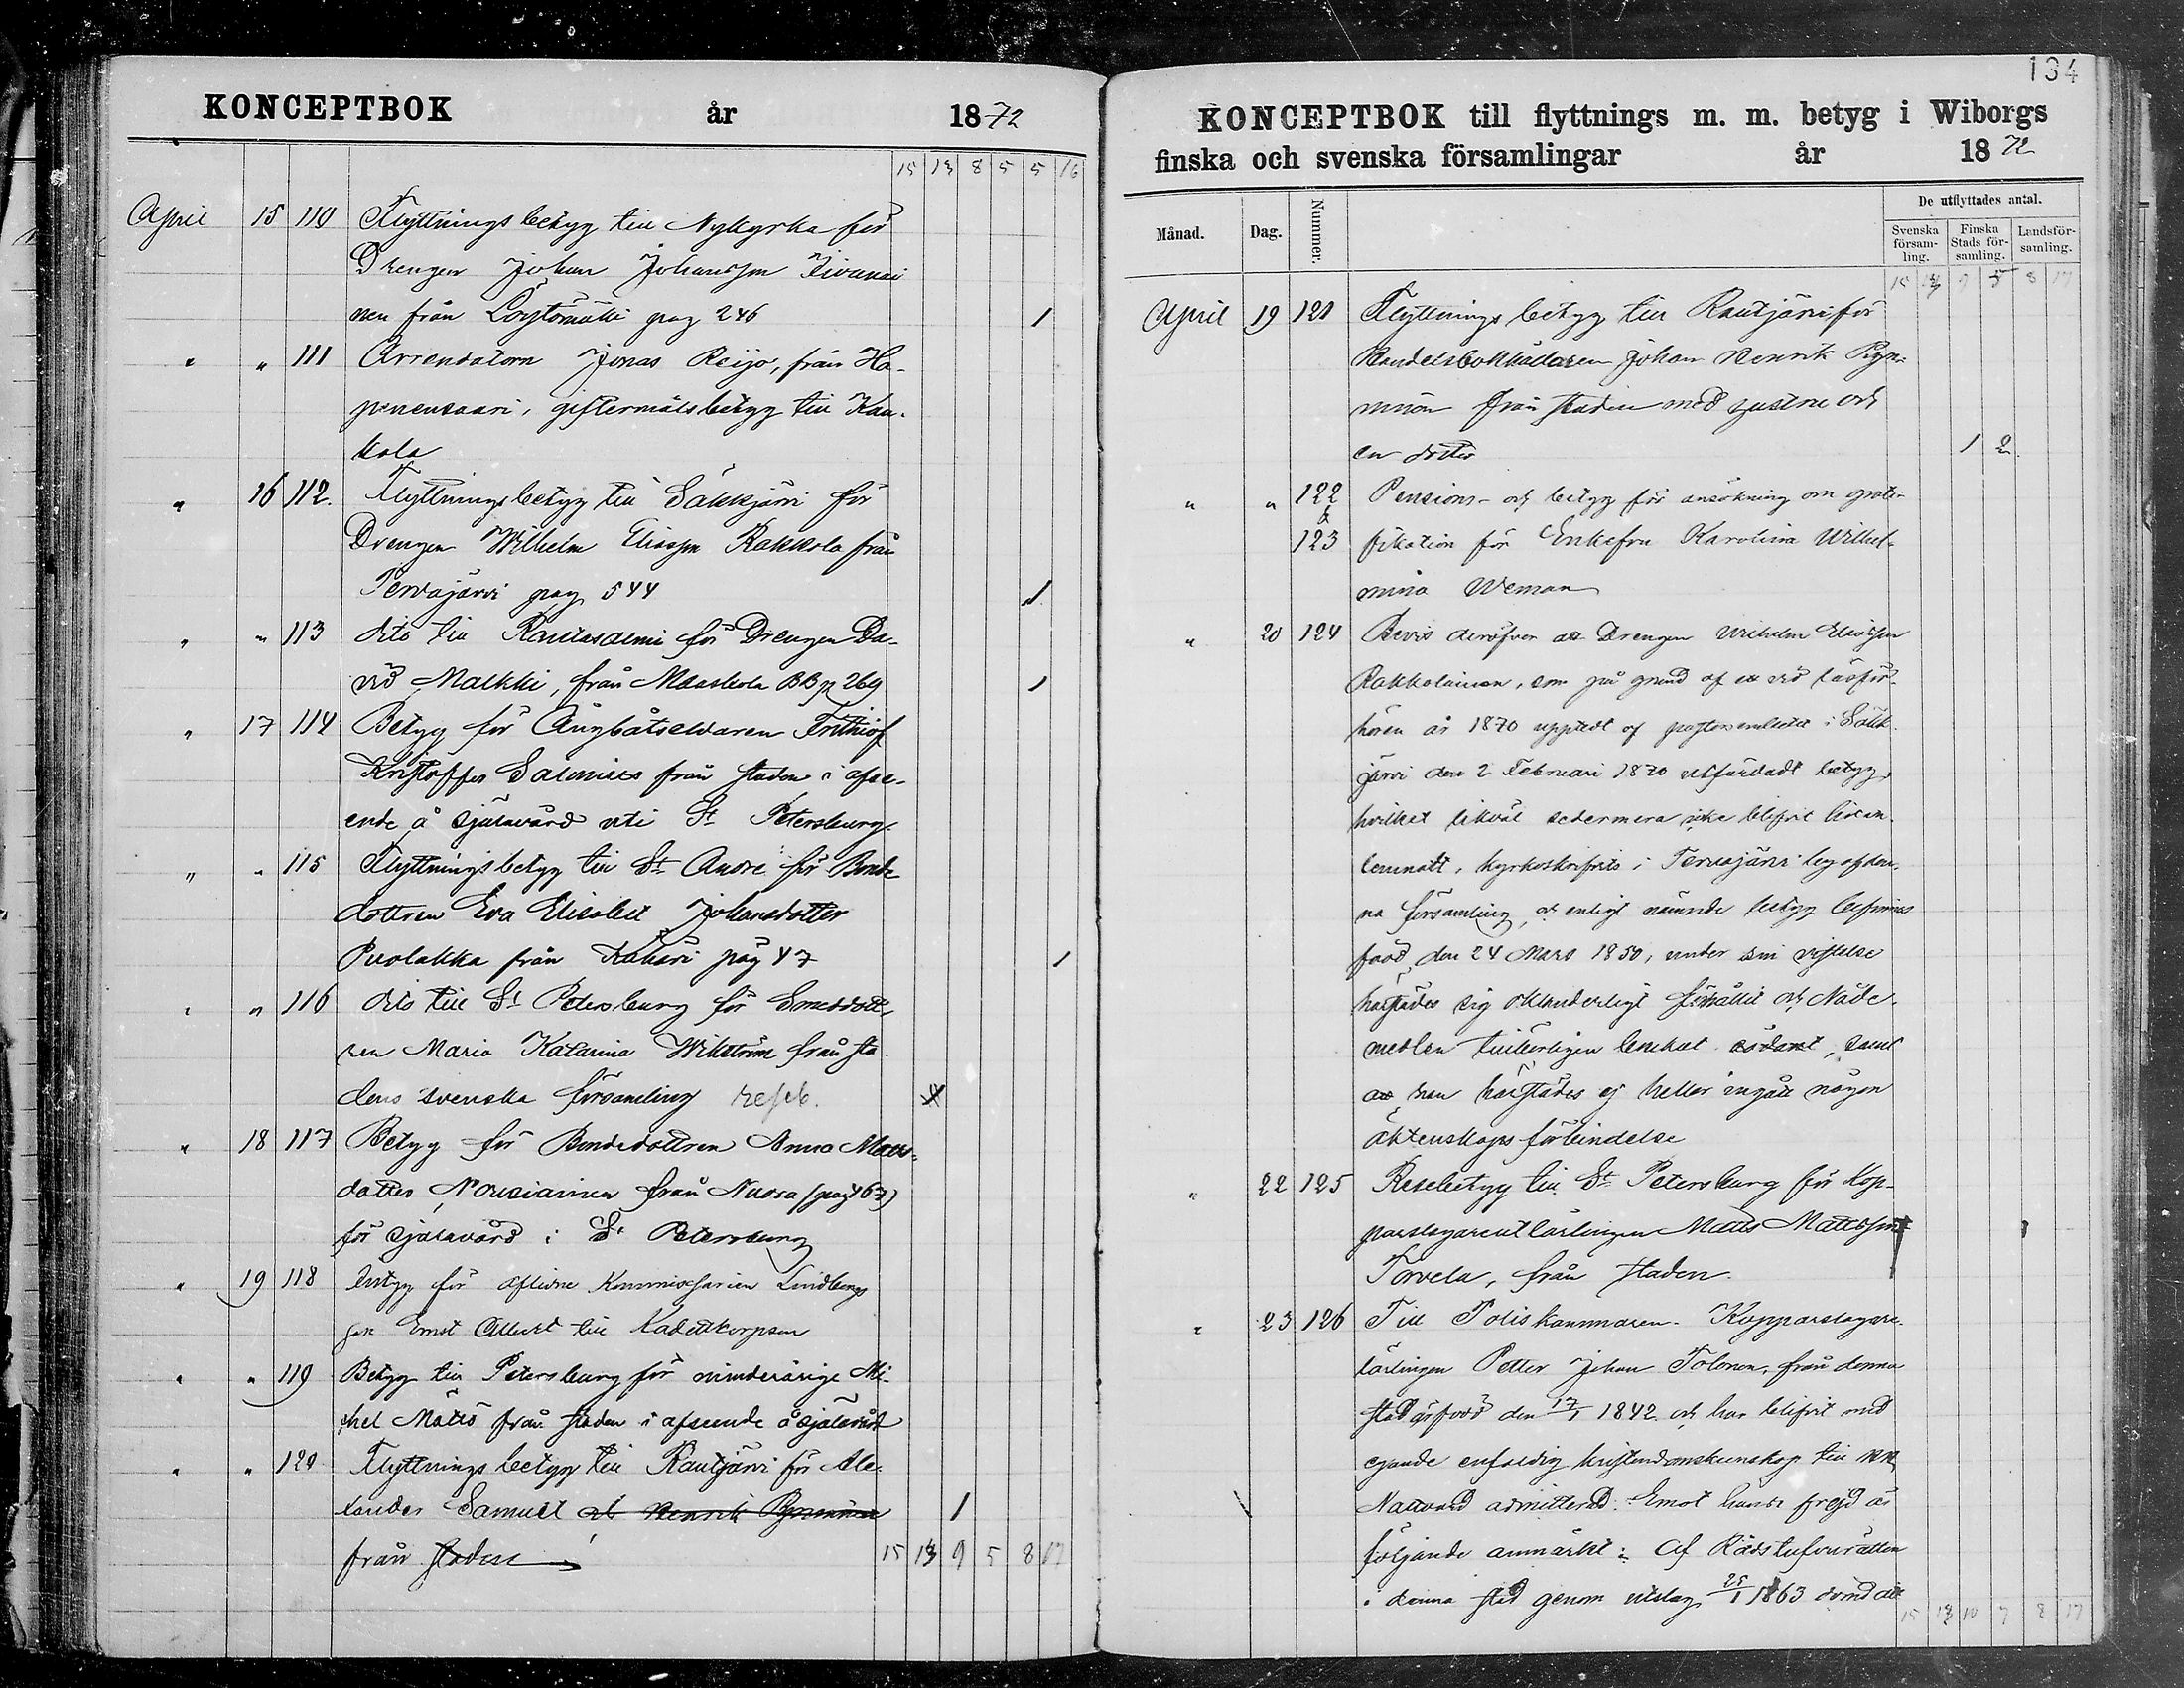 KONCEPTBOK år 1872
15 13 8 5 5 16
April 15 110 Flyttningsbetyg till Nykyrka för
Drengen Johan Johansson Tiivanai
nen från Löytömäki pag 246 1
" " 111 Arrendatorn Jonas Reijo, från Ha-
penensaari, giftermålsbetyg till Kau-
kola
" 16 112. Flyttningsbetyg till Säkkjärvi för
Drengen Wilhelm Eliasson Rakkola från
Tervajärvi pag 544 1
" " 113 dito till Rantasalmi för Drengen Da-
vid Malkki, från Maaskola BB p 269 1
" 17 114 Betyg för Ångbåtseldaren Frithiof
Kristoffer Salenius från staden i afse-
ende å själavård uti St Petersburg
" " 115 Flyttningsbetyg till St Andre för Bonde
dottren Eva Elisabet Johansdotter
Puolakka från Kahari pag 47 1
" " 116 dito till St Petersburg för Smeddott
ren Maria Katarina Wikström från sta
dens svenska församling
" 18 117 Betyg för Bondedottren Anna Matts-
dotter Nousiainen från Nuora (pag 467)
för själavård i St Petersburg
" 19 118 Intyg för aflidne Kommissarien Lindbergs
son Ernst Albert till Kadettkorpsen
" " 119 Betyg till Petersburg för minderårige Mi-
chel Mätts från staden i afseende å själavård
" " 120 Flyttningsbetyg till Rautjärvi för Ale-
xander Samuel Henrik Pynninen 1
från staden 15 13 9 5 8 17
134
KONCEPTBOK till flyttnings m. m. betyg i Wiborgs
finska och svenska församlingar år 1872
Månad. Dag. Nummer. De utflyttades antal.
Svenska församling. Finska Stads församling. Landsförsamling.
15 13 9 5 8 17
April 19 121 Flyttningsbetyg till Rautjärvi för
Handelsbokhållaren Johan Henrik Pyn-
ninen från staden med hustru och
en dotter 1 2
" " 122 Pensions- och betyg för ansökning om grati-
&
123 fikation för Enkefru Karolina Wilhel-
mina Weman
" 20 124 Bevis deröfver att Drengen Wilhelm Eliasson
Rakkolainen, som på grund af ett vid läsför-
hören år 1870 upptedt af pastorsembetet i Säkk
järvi den 2 Februari 1870 utfärdadt betyg,
hvilket likväl sedermera icke blifvit hit in
lemnadt, kyrkoskrifvits i Tervajärvi by af den-
na församling, är enligt nämnde betyg
född den 24 Mars 1850, under sin vistelse
härstädes sig oklanderligt förhållit och Nåde-
medlen tillbörligen bevekat sådant, samt
att han härstädes ej heller ingått någon
äktenskapsförbindelse
" 22 125 Resebetyg till St Petersburg för Kop-
parslagarelärlingen Matts Mattsson
Torvela, från staden.
" 23 126 Till Poliskammaren. Kopparslagare-
lärlingen Petter Johan Tolonen, från denna
stad är född den 17/1 1842 och har blifvit med
egande enfaldig kristendomskunskap till HH
Nattvard admitterad. Emot hans frejd är
följande anmärkt: Af Rådstufvurätten
i denna stad genom utslag 25/1 1863 dömd att
15 13 10 7 8 17